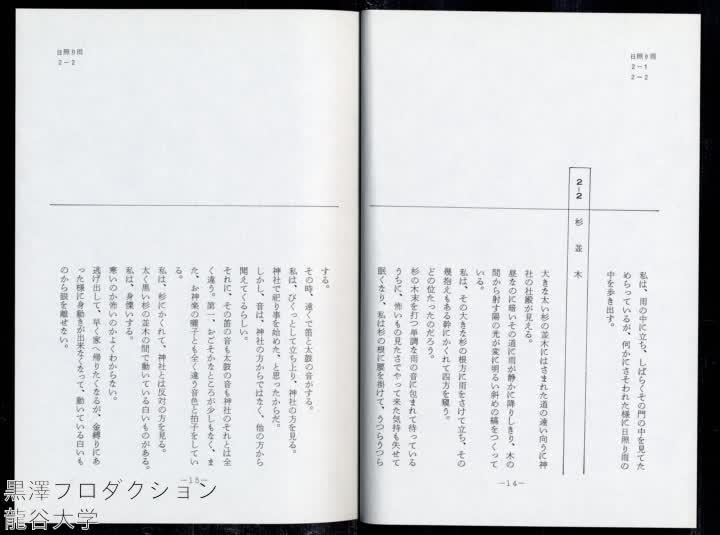 日照り雨
2－1
2－2
私は、雨の中に立ち、しばらくその門の中を見てた
めらっているが、何かにさそわれた様に日照り雨の
中を歩き出す。
2－2 杉並木
大きな太い杉の並木にはさまれた道の遠い向うに神
社の社殿が見える。
昼なのに暗いその道に雨が静かに降りしきり、木の
間から射す陽の光が変に明るい斜めの縞をつくって
いる。
私は、その大きな杉の根方に雨をさけて立ち、その
幾抱えもある幹にかくれて四方を窺う。
どの位たったのだろう。
杉の木末を打つ単調な雨の音に包まれて待っている
うちに、怖いもの見たさでやって来た気持も失せて
眠くなり、私は杉の根に腰を掛けて、うつらうつら
－14－
日照り雨
2－2
する。
その時、遠くで笛と太鼓の音がする。
私は、びくっとして立ち上り、神社の方を見る。
神社で祀り事を始めた、と思ったからだ。
しかし、音は、神社の方からではなく、他の方から
聞えてくるらしい。
それに、その笛の音も太鼓の音も神社のそれとは全
く違う。第一、おごそかなところが少しもなく、ま
た、お神楽の囃子とも全く違う音色と拍子をしてい
る。
私は、杉にかくれて、神社とは反対の方を見る。
太く黒い杉の並木の間で動いている白いものがある。
私は、身慄いする。
寒いのか怖いのかよくわからない。
逃げ出して、早く家へ帰りたくなるが、金縛りにあ
った様に身動きが出来なくなって、動いている白いも
のから眼を離せない。
－15－
黒澤プロダクション
龍谷大学